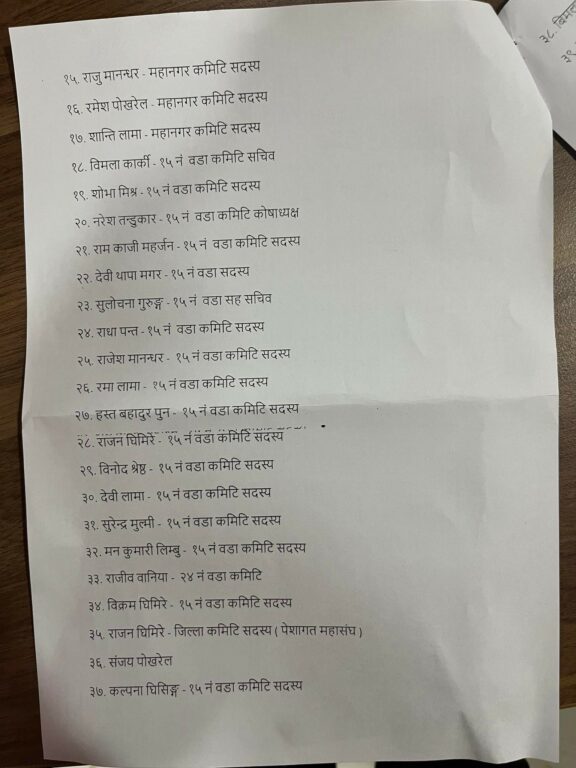 १५. राजु मानन्धर - महानगर कमिटि सदस्य
१६. रमेश पोखरेल - महानगर कमिटि सदस्य
१७. शान्ति लामा - महानगर कमिटि सदस्य
१८. विमला कार्की - १५ नं वडा कमिटि सचिव
१९. शोभा मिश्र - १५ नं वडा कमिटि सदस्य
२०. नरेश तन्डुकार - १५ नं वडा कमिटि कोषाध्यक्ष
२१. राम काजी महर्जन - १५ नं वडा कमिटि सदस्य
२२. देवी थापा मगर - १५ नं वडा सदस्य
२३. सुलोचना गुरुङ्ग - १५ नं वडा सह सचिव
२४. राधा पन्त - १५ नं वडा कमिटि सदस्य
२५. राजेश मानन्धर - १५ नं वडा कमिटि सदस्य
२६. रमा लामा - १५ नं वडा कमिटि सदस्य
२७. हस्त बहादुर पुन - १५ नं वडा कमिटि सदस्य
२८. राजन घिमिरे - १५ नं वडा कमिटि सदस्य
२९. विनोद श्रेष्ठ - १५ नं वडा कमिटि सदस्य
३०. देवी लामा - १५ नं वडा कमिटि सदस्य
३१. सुरेन्द्र मुल्मी - १५ नं वडा कमिटि सदस्य
३२. मन कुमारी लिम्बु - १५ नं वडा कमिटि सदस्य
३३. राजीव वानिया - २४ नं वडा कमिटि
३४. विक्रम घिमिरे - १५ नं वडा कमिटि सदस्य
३५. राजन घिमिरे - जिल्ला कमिटि सदस्य ( पेशागत महासंघ )
३६. संजय पोखरेल
३७. कल्पना घिसिङ्ग - १५ नं वडा कमिटि सदस्य
३८.
३९